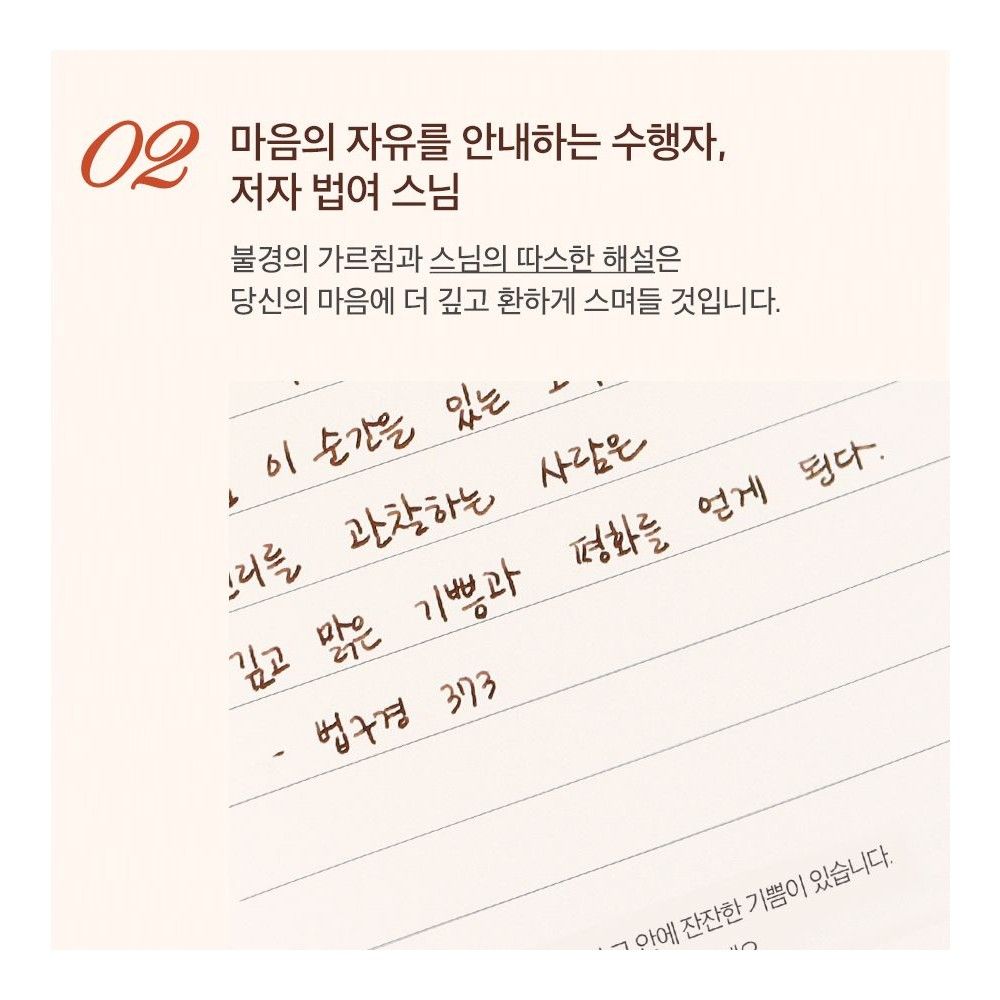 02
마음의 자유를 안내하는 수행자,
저자 법여 스님
불경의 가르침과 스님의 따스한 해설은
당신의 마음에 더 깊고 환하게 스며들 것입니다.
이 순간을 있는
관찰하는 사람은
깊고 맑은 기쁨과 평화를 얻게 된다.
- 법구경 373
안에 잔잔한 기쁨이 있습니다.